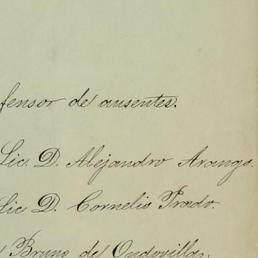 fensor de ausentes.
Lic. D. Alejandro Arango.
Lic D. Cornelio Prado.
Bruno de Ondovilla